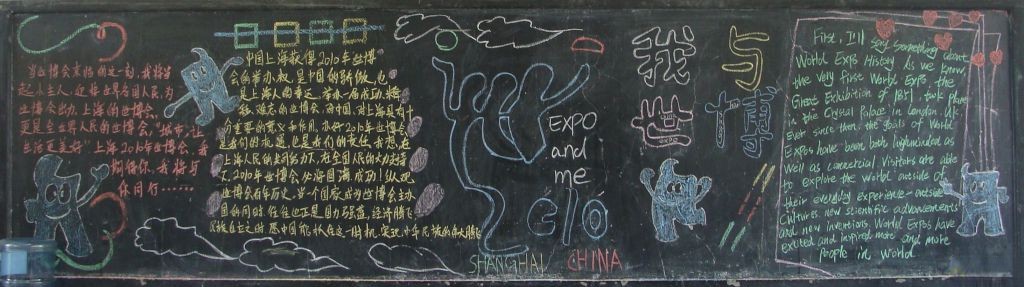 当世博会来临的这一刻,我将当
起小主人,迎接世界各国人民,为
世博会出力,上海的世博会,
更是全世界人民的世博会,"城市,让
生活更美好"上海2010年世博会,我
期待你,我将与
你同行……
中国上海获得2010年世博
会的举办权,是中国的骄傲,也
是上海人的幸运,举办一届成功、精
彩、难忘的世博会,对中国、对上海具有十
分重要的意义和作用,办好2010年世博会
是我们的荣誉,也是我们的责任,我想,在
上海人民的共同努力下,在全国人民的大力支持
下,2010年世博会必将圆满成功!纵观
世博会百年历史,当一个国家成为世博会主办
国的同时,往往也正是国力强盛,经济腾飞
之时,愿中国能抓住这一时机,实现中华民族的伟大腾飞
EXPO
and
me
2010
SHANGHAI CHINA
我与
世博
First, I'll say something about
World Expo History As we know,
the very first World Expo the
Great Exhibition of 1851 took place
in the Crystal Palace in London, UK.
Ever since then, the goals of World
Expos have been both highminded as
well as commercial Visitors are able
to explore the world outside of
their everyday experience-outside
Cultures, new scientific advancements
and new inventions, World Expos have
excited and inspired more and more
people in world.